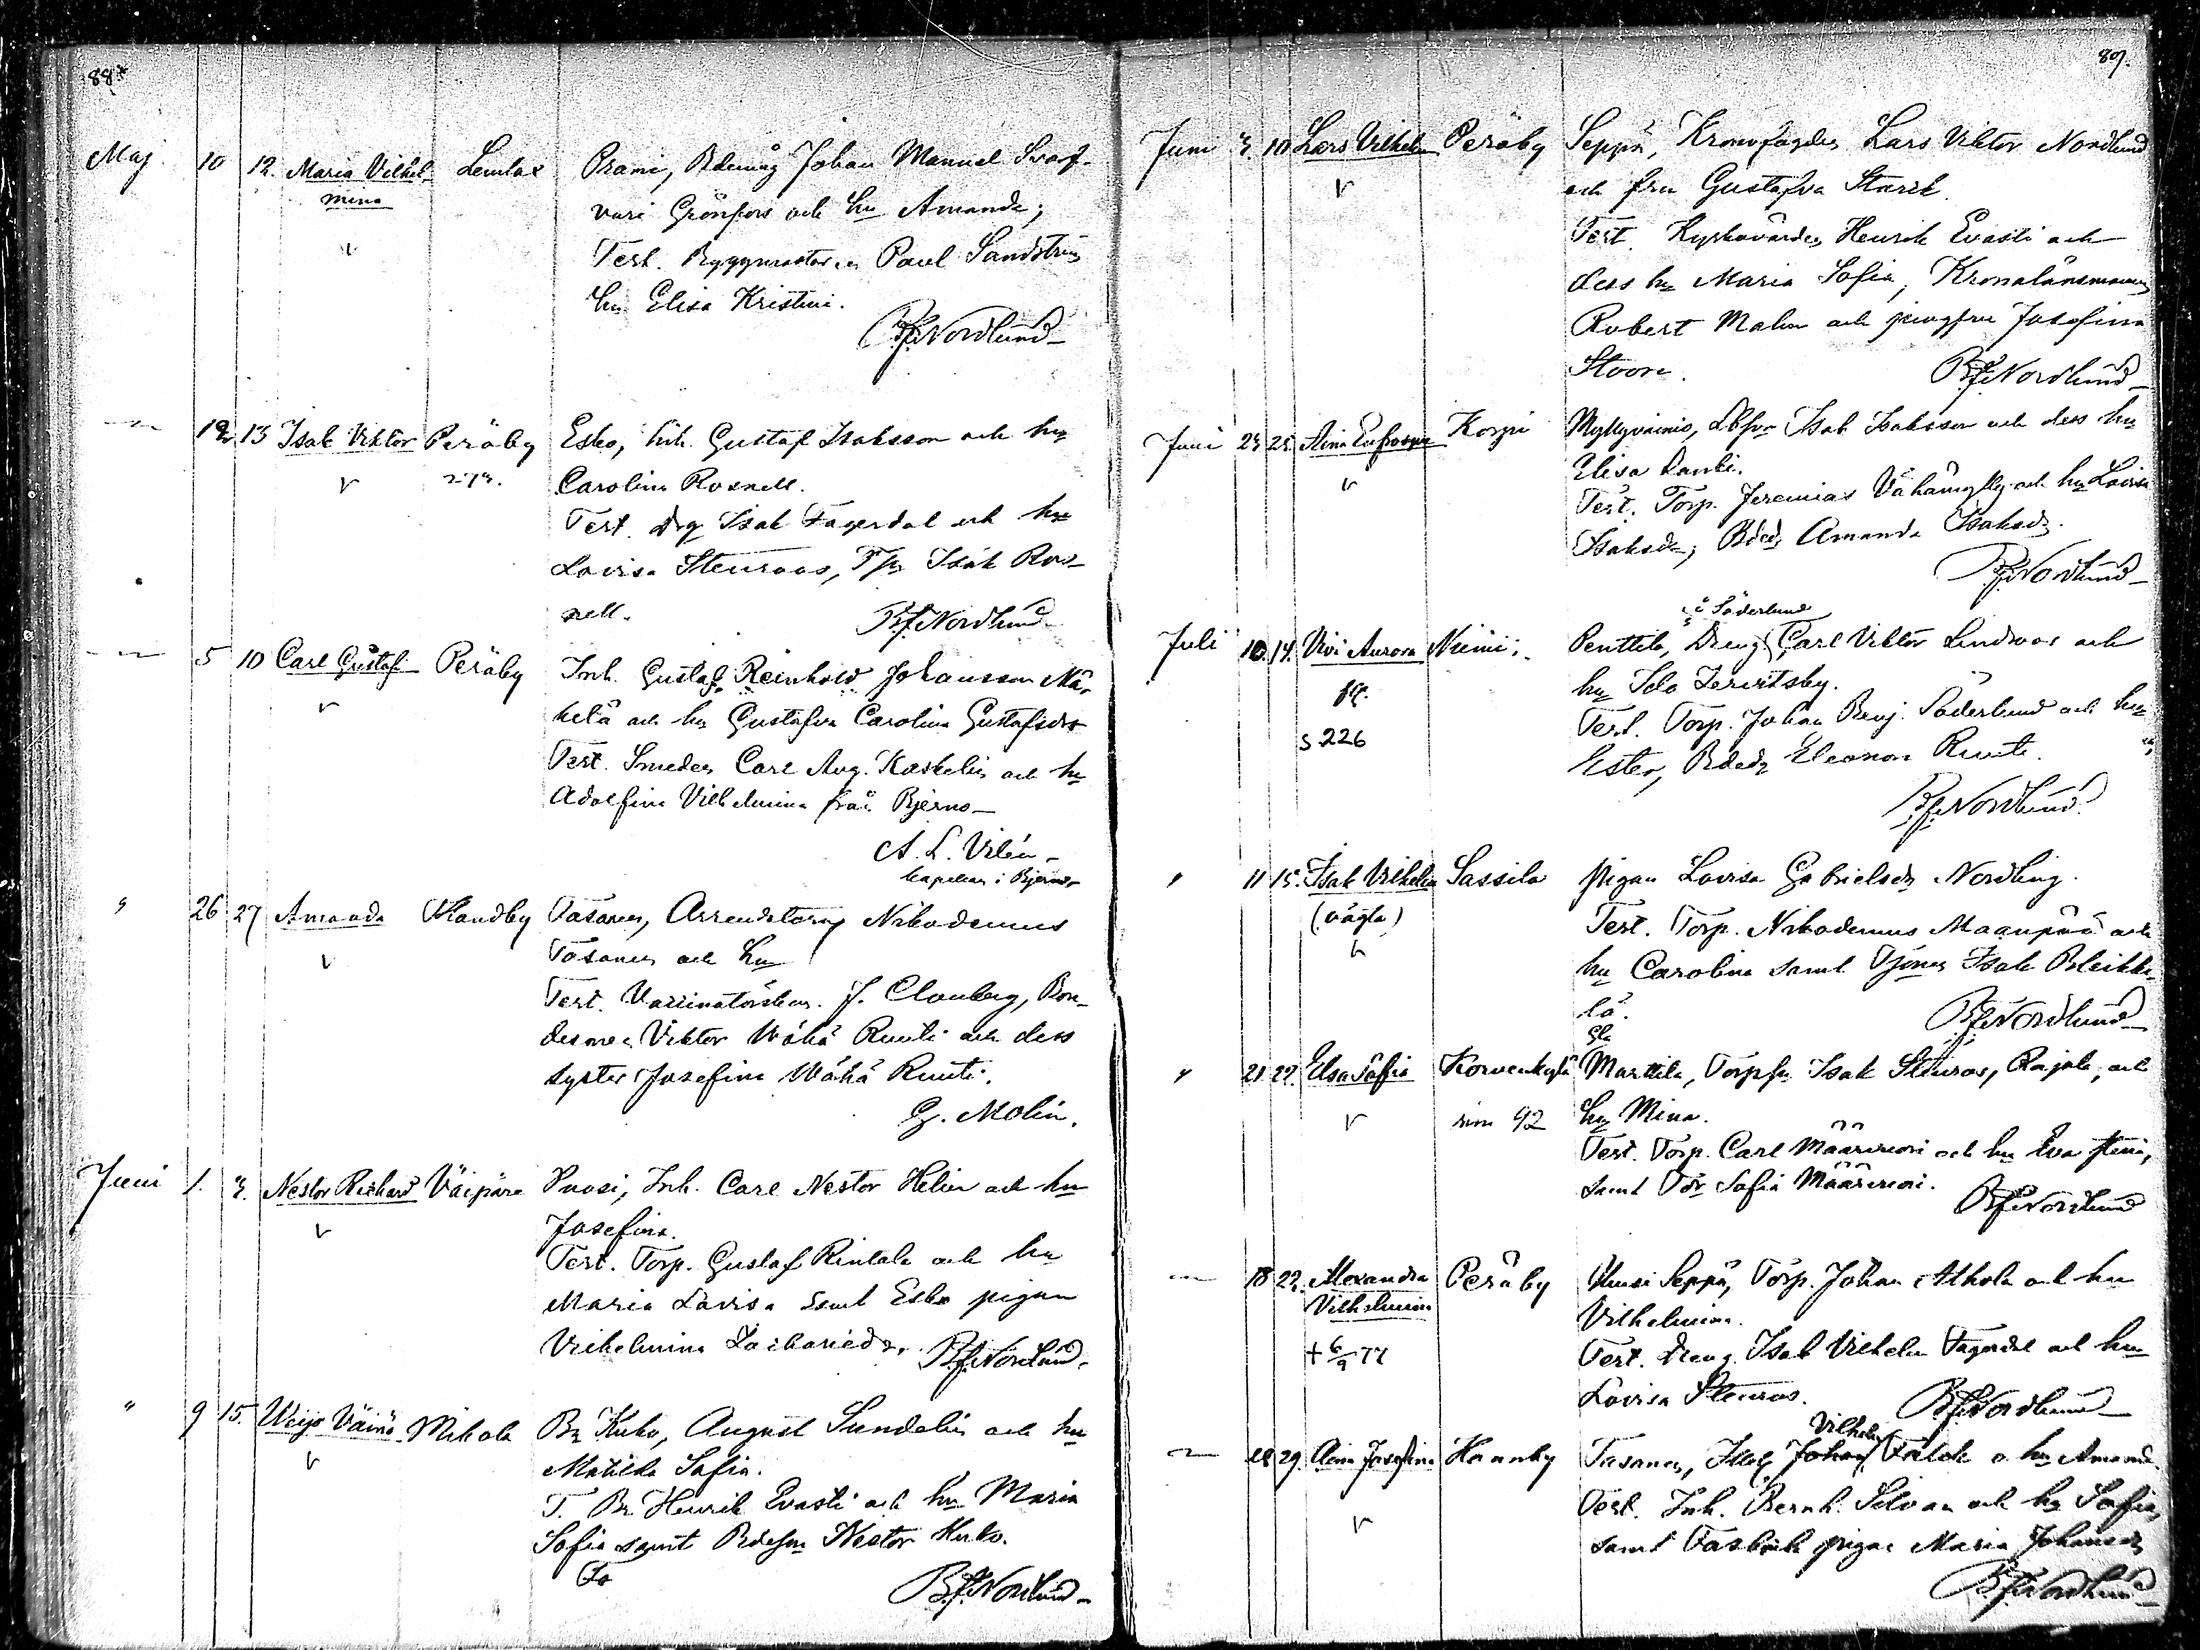 88
Maj 10 12. Maria Vilhel- Lemlax Prami, Bdemåg Johan Manuel Svarf-
mina vari Grönfors och hu Amanda;
Test. Byggmästaren Paul Sandström
hu Elisa Kristina.
B.f. Nordlund
12 13 Isak Viktor Peräby Esko, Inh. Gustaf Isaksson och hu
273. Carolina Rosnell.
Test. Drg Isak Fagerdal och hu
Lovisa Stenroos, Isak Ros-
nell. B.f. Nordlund
5 10 Carl Gustaf Peräby Inh. Gustaf Reinhold Johansson Mä-
kelä och hu Gustafva Carolina Gustafsdr
Test. Smeden Carl Aug. Kaskelin och hu
Adolfina Vilhelmina från Bjerno
A. L. Vilén
kapellan i Bjerno
" 26 27 Amanda Strandby Tasanen, Arrendatorn Nikodemus
Tasanen och hu
Test. Vaccinatörskan J. Clonberg, Bon-
desonen Viktor Wähä Ruuti och dess
syster Josefina Wähä Ruuti.
G. Molin.
Juni 1. 3. Nestor Richard Väipäre Vuosi, Inh. Carl Nestor Helin och hu
Josefina.
Test. Torp. Gustaf Rintala och hu
Maria Lovisa samt Esko pigan
Vilhelmina Zachariedr. B.f. Nordlund.
" 9 15. Weijo Väinö Mikola Bn Kuko, August Sundelin och hu
Matilda Sofia.
T. Bn Henrik Evasti och hu Maria
Sofia samt Bdeson Nestor Kuko.
B.f. Nordlund
89.
Juni 3. 10 Lars Vilhelm Peräby Seppä, Kronofogden Lars Viktor Nordlund
och fru Gustafva Starck.
Test. Kyrkovärden Henrik Evasti och
dess hu Maria Sofia, Kronolänsmannen
Robert Malm och jungfru Josefina
Stoore. B.f. Nordlund
Juni 23 25. Aina Eufrosyne Korpi Myllyvainio, Isak Isaksson och dess hu
Elisa
Test. Torp. Jeremias Vähämylly och hu Lovisa
Isaksdr; Bdedr Amanda Isaksdr.
B.f. Nordlund
å Söderlund
Juli 10 14. Vivi Aurora Niemi; Penttila, Dreng Carl Viktor Lindroos och
fl. hu Ida Zervitsby.
s 226 Test. Torp. Johan Benj. Söderlund och hu
Ester, Bdedr Eleonora Ruuti.
B.f. Nordlund
" 11 15. Isak Vilhelm Sassila pigan Lovisa Gabrielsdr Nordling.
(oägta) Test. Torp. Nikodemus Maanpää och
hu Carolina samt Isak Pleikki-
lä. B.f. Nordlund
" 21 22. Elsa Sofia Korvenkylä Marttila, Torpsn Isak Stenroos, Rajala, och
sim 92 hu Mina.
Test. Torp. Carl Määrinen och hu Eva Stina,
samt Sofia Määrinen. B.f. Nordlund
18 22. Alexandra Peräby Uusi Seppä, Torp. Johan Alhola och hu
Vilhelmina Vilhelmina.
+ 6/9 77 Test. Dreng. Isak Vilhelm Fagerdal och hu
Lovisa Stenroos. B.f. Nordlund
Vilhelm
28 29. Aina Josefina Haanby Tasanen, Johan Falck o hu Amanda
Test. Inh. Bernh. Silvan och hu Sofia,
samt pigan Maria Johansdr
B.f. Nordlund